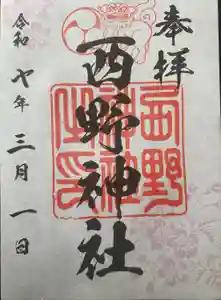 奉拝
西野神社
西野神社之印
令和七年三月一日